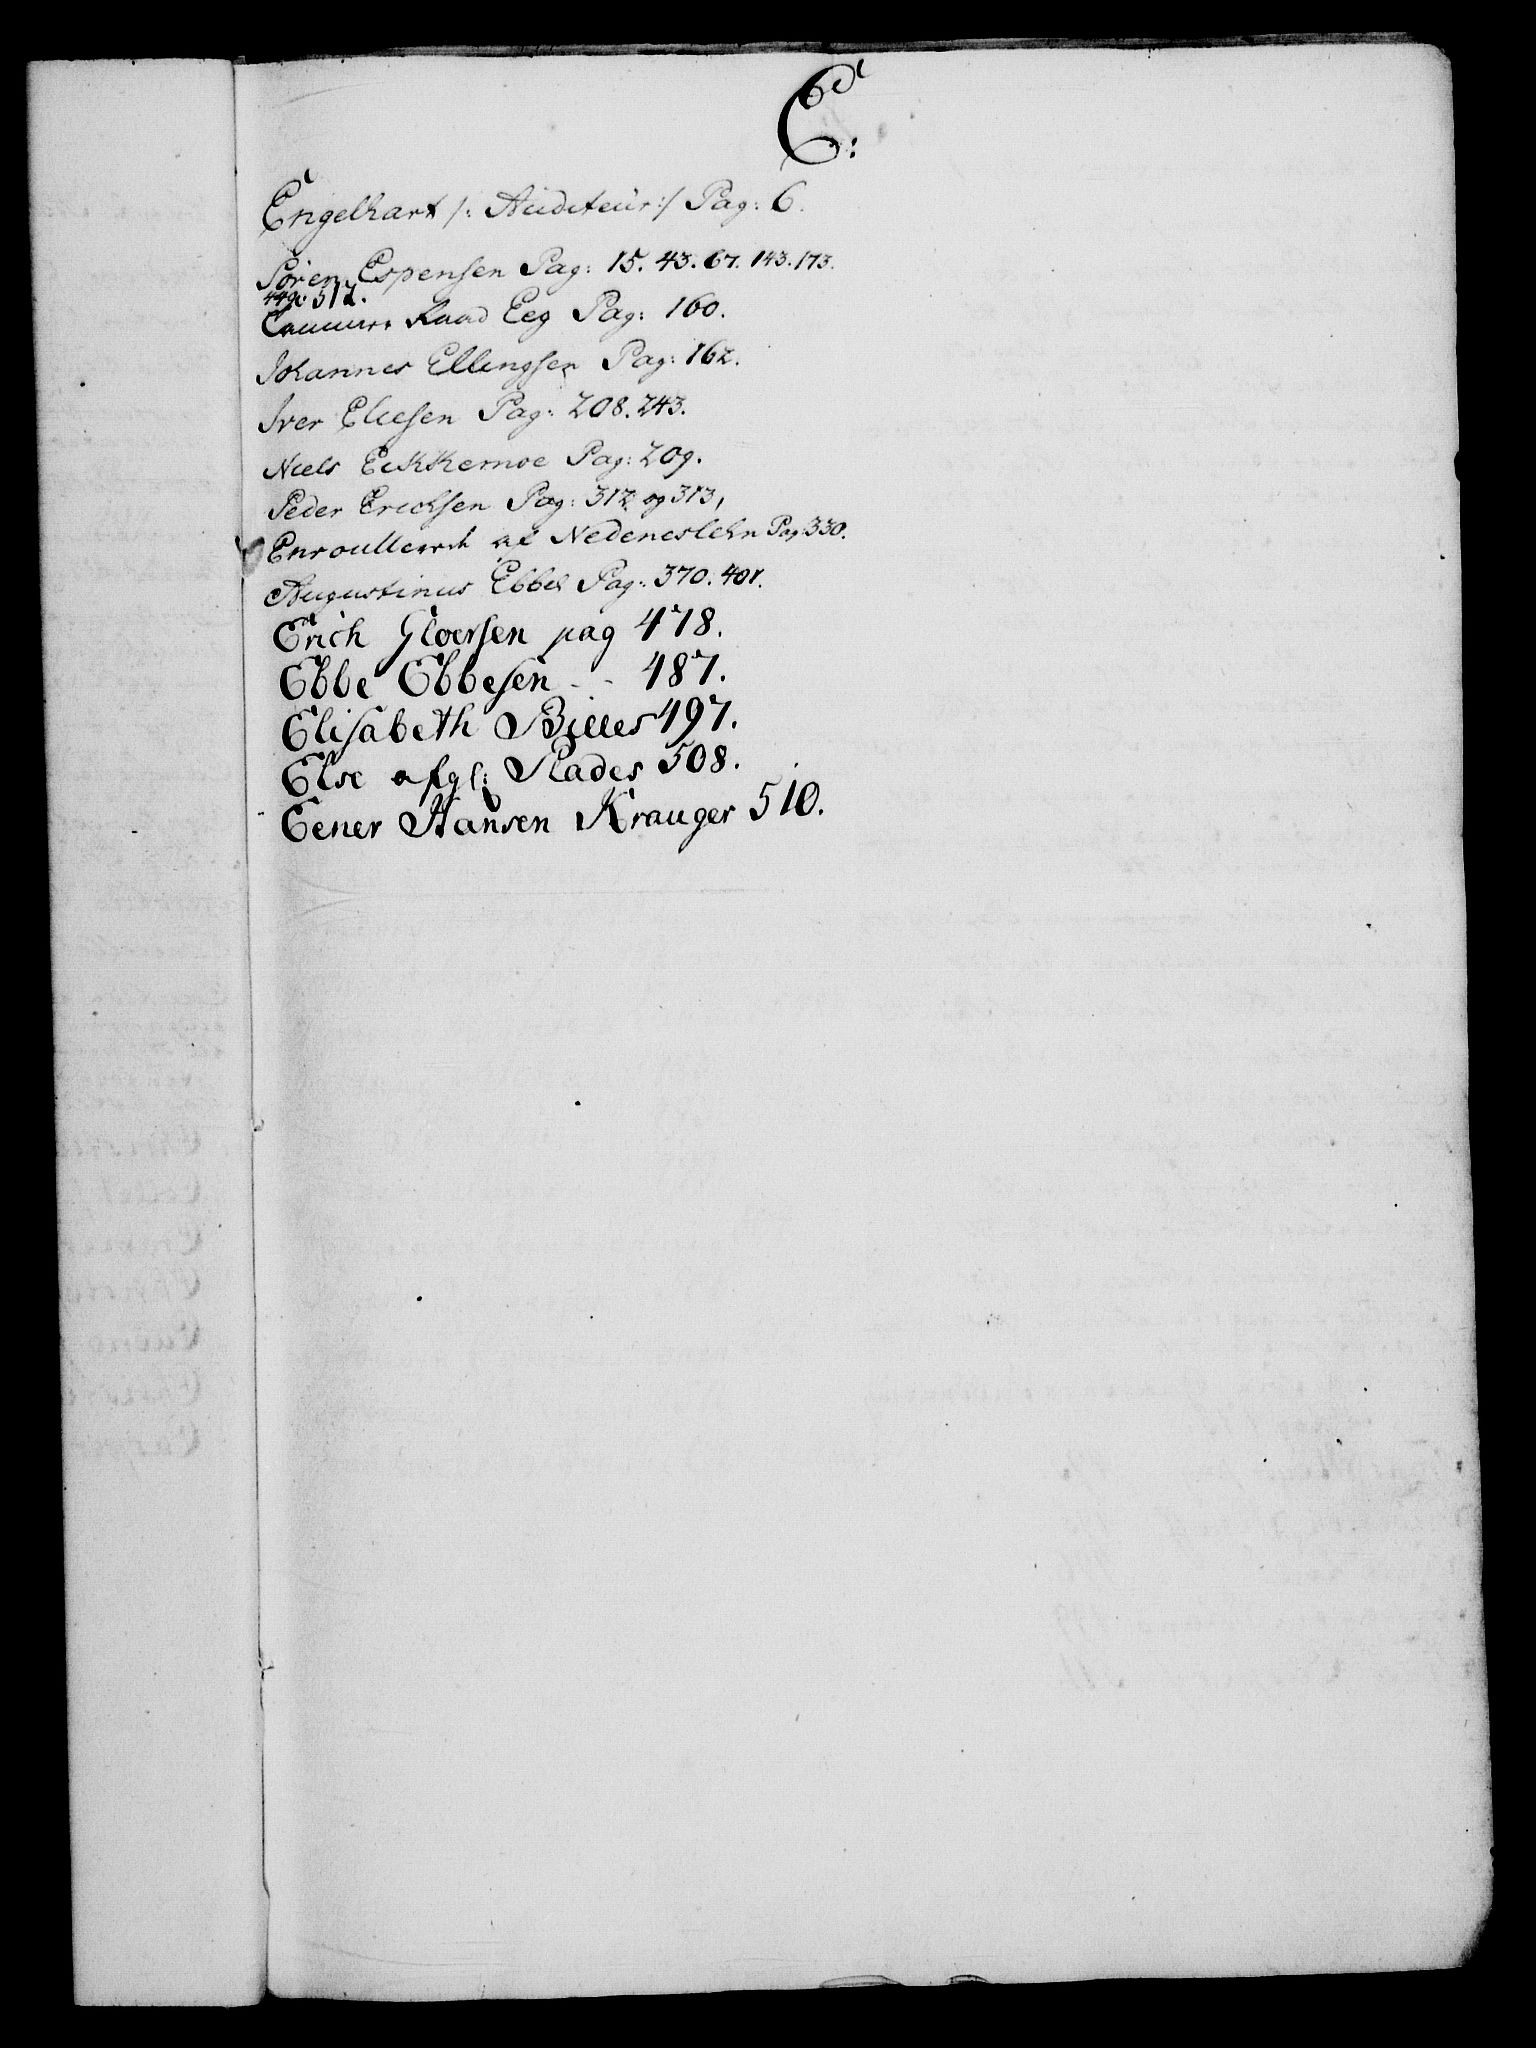 E:
Engelhart /: Auditeur:/ Pag: 6.
Sören Espensen Pag: 15. 43. 67. 143. 173.
449. 512.
Raad Eeg Pag: 160.
Johannes Ellingsen Pag: 162.
Iver Eliesen Pag: 208. 243.
Niels Eckkemoe Pag: 209.
Peder Erichsen Pag: 312 og 313,
af Nedeneslehn Pag 330.
Augustinus Ebbel Pag: 370. 401.
Erich Gloersen pag 478.
Ebbe Ebbesen - - 487.
Elisabeth Billes 497.
Else afgl: Plades 508.
Eener Hansen Krauger 510.